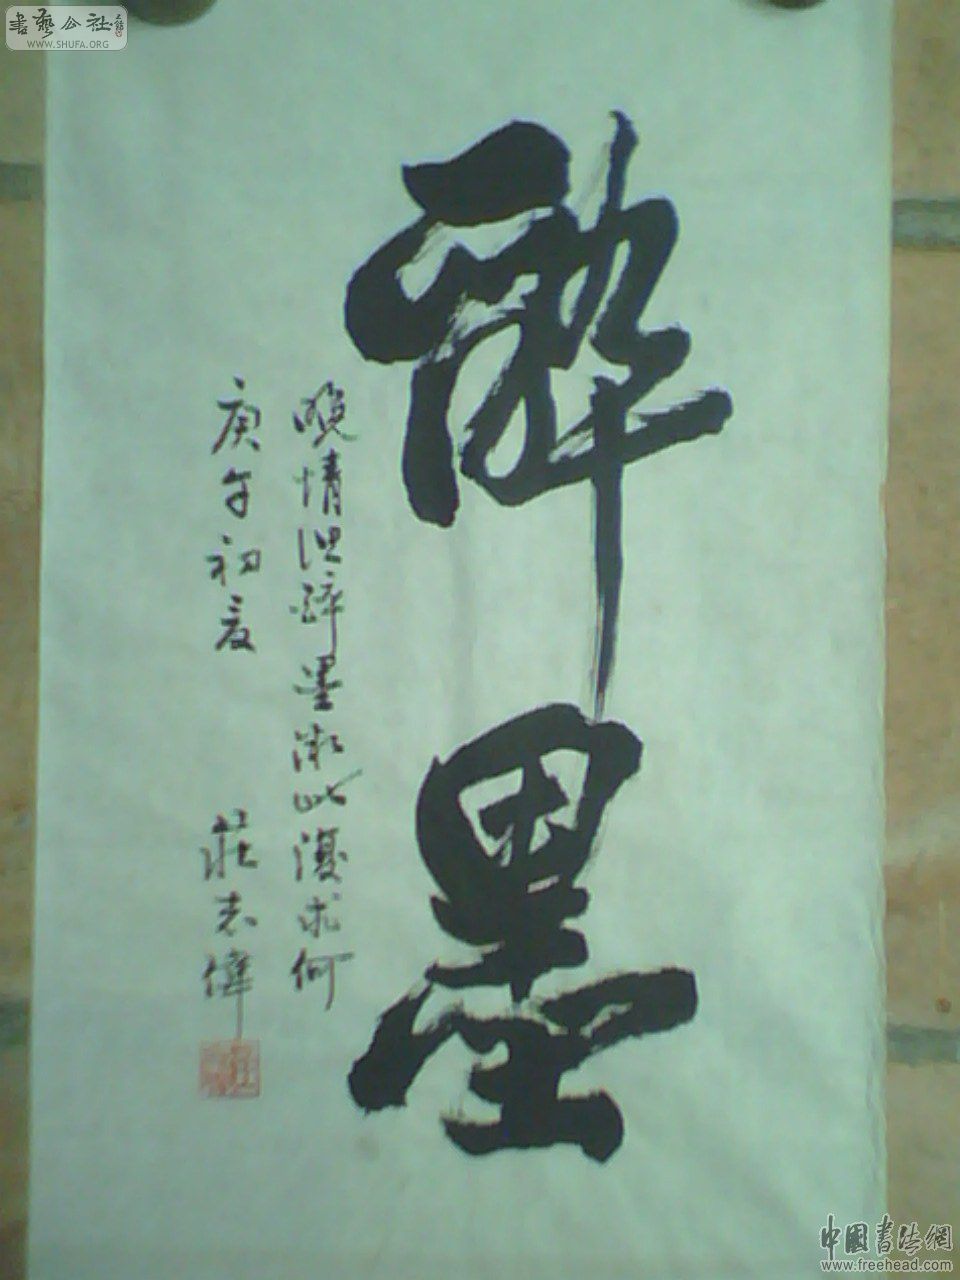 書藝公社
WWW.SHUFA.ORG
醉墨
晚情但醉墨 此復求何
庚午初夏 莊志偉
中国书法網
www.freehead.com